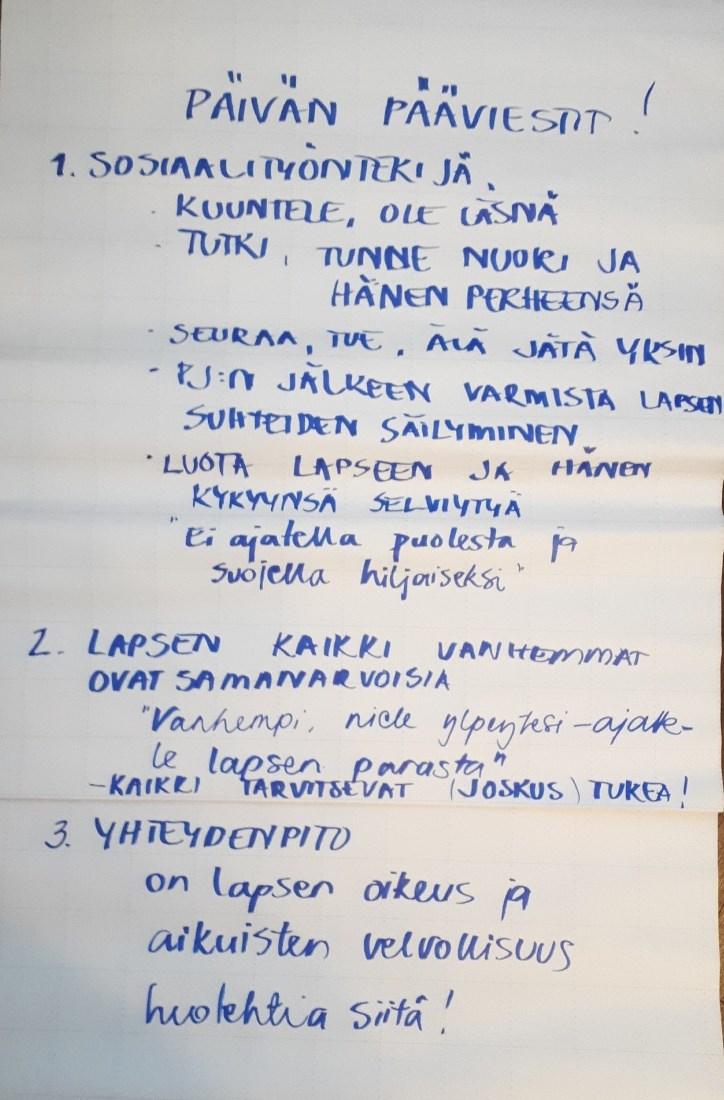 PÄIVÄN PÄÄVIESTIT!
1. SOSIAALITYÖNTEKIJÄ,
· KUUNTELE, OLE LÄSNÄ
· TUTKI, TUNNE NUORI JA
HÄNEN PERHEENSÄ
· SEURAA, TUE, ÄLÄ JÄTÄ YKSIN
· PJ:N JÄLKEEN VARMISTA LAPSEN
SUHTEIDEN SÄILYMINEN
· LUOTA LAPSEEN JA HÄNEN
KYKYYNSÄ SELVIYTYÄ
"Ei ajatella puolesta ja
suojella hiljaiseksi"
2. LAPSEN KAIKKI VANHEMMAT
OVAT SAMANARVOISIA
"Vanhempi, niele ylpeytesi – ajatte-
le lapsen parasta"
– KAIKKI TARVITSEVAT (JOSKUS) TUKEA!
3. YHTEYDENPITO
on lapsen oikeus ja
aikuisten velvollisuus
huolehtia siitä!